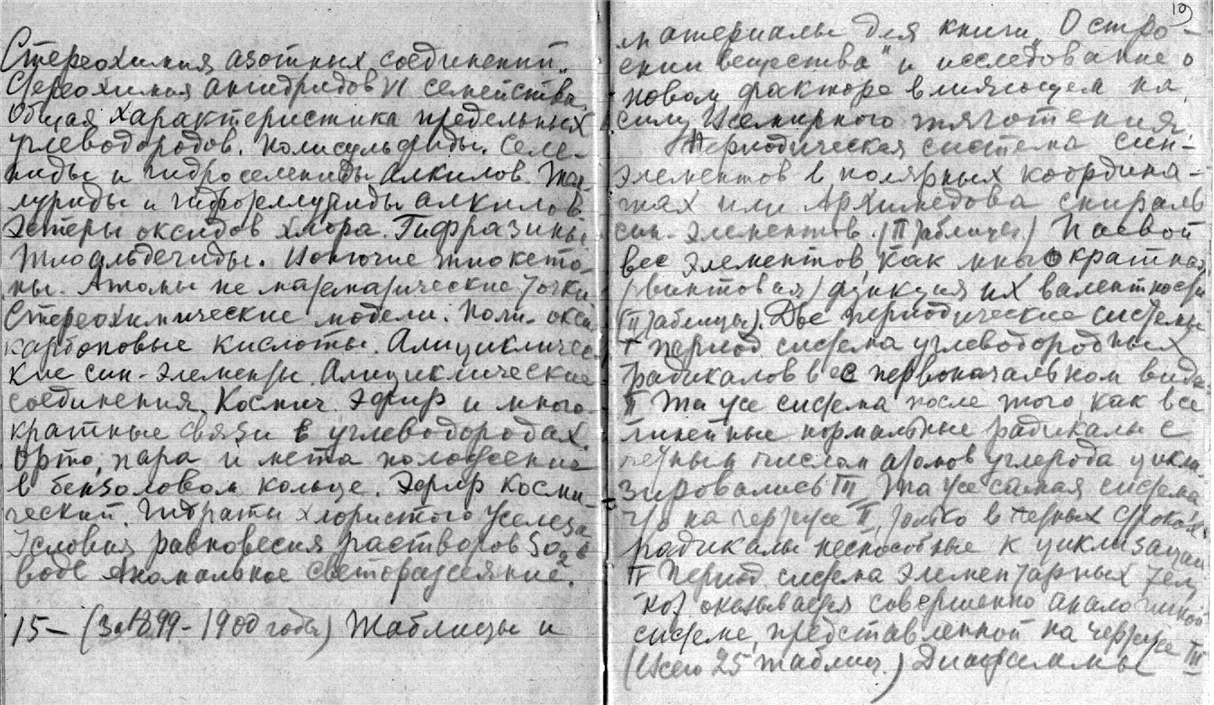 Стереохимия азотных соединений.
Стереохимия ангидридов VI семейства.
Общая характеристика предельных
углеводородов. Полисульфиды. Селе-
ниды и гидроселениды алкилов. Тел-
луриды и гидротеллуриды алкилов.
Эстеры оксидов хлора. Гидразины
Тиоальдегиды. Ионючие тиокето-
ны. Атомы не математические точки
Стереохимические модели. Поли-окси
карбоновые кислоты. Алицикличес-
кие син-элементы. Алициклические
соединения. Космич. эфир и много-
кратные связи в углеводородах.
Орто, пара и мета положение
в бензоловом кольце. Эфир косми
ческий. Гидраты хлористого железа
Условия равновесия растворов SO2 в
воде. Аномальное светорассеяние.
15 – (За 1899 – 1900 годы) Таблицы и
19
материалы для книги „О стро-
ении вещества" и исследование о
новом факторе влияющем на
силу Всемирного тяготения.
Периодическая система син-
элементов в полярных координа-
тах или Архимедова спираль
син-элементов. (II таблица) Паевой
вес элементов, как многократная
(винтовая) функция их валентности
(II таблицы). Две периодические системы
I период система углеводородных
радикалов в ее первоначальном виде.
II Та же система после того, как все
линейные нормальные радикалы с
четным числом атомов углерода цикли
зировались III Та же самая система
что на чертеже II, только в четных строках
радикалы неспособные к циклизации
IV Период система элементарных тел,
ко] оказывается совершенно аналогичной
системе, представленной на чертеже III
(Всего 25 таблиц.) Диаграммы